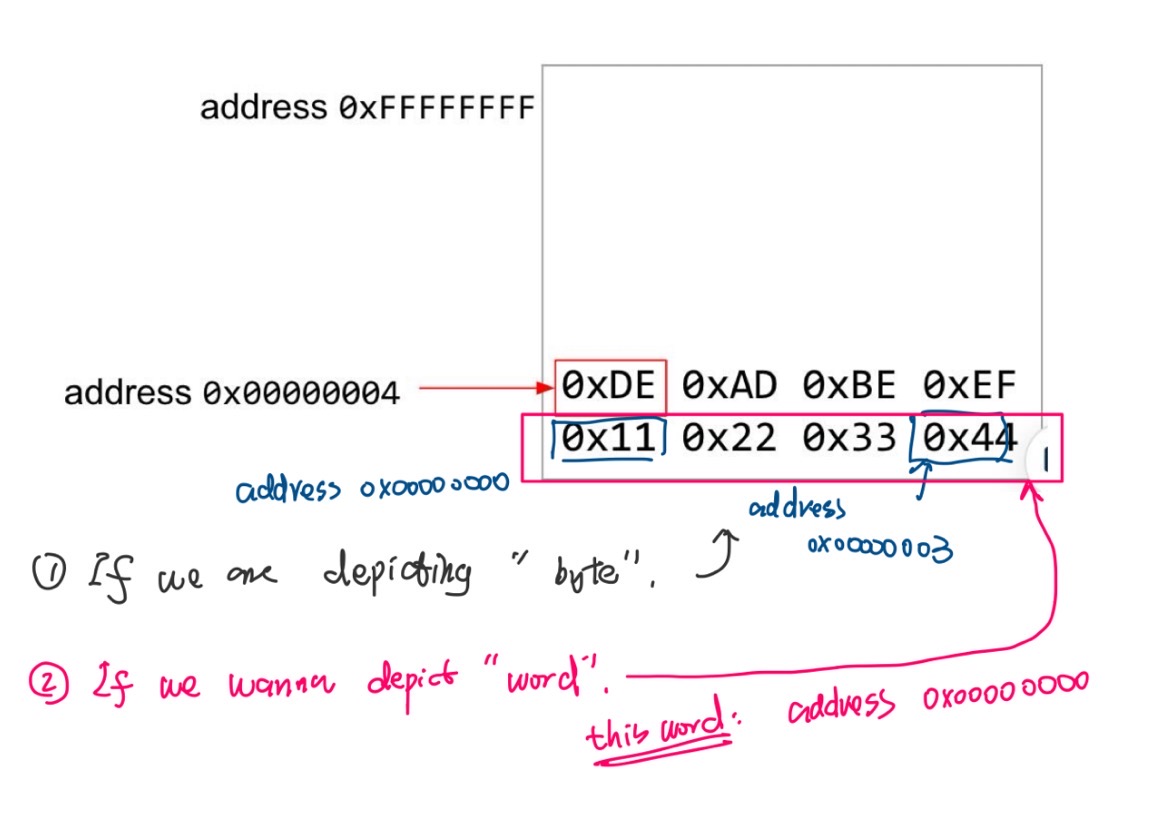 address 0xFFFFFFFF
address 0x00000004
0xDE 0xAD 0xBE 0xEF
0x11 0x22 0x33 0x44
address 0x00000000
address
0x00000003
① If we are depicting "byte".
② If we wanna depict "word".
this word: address 0x00000000